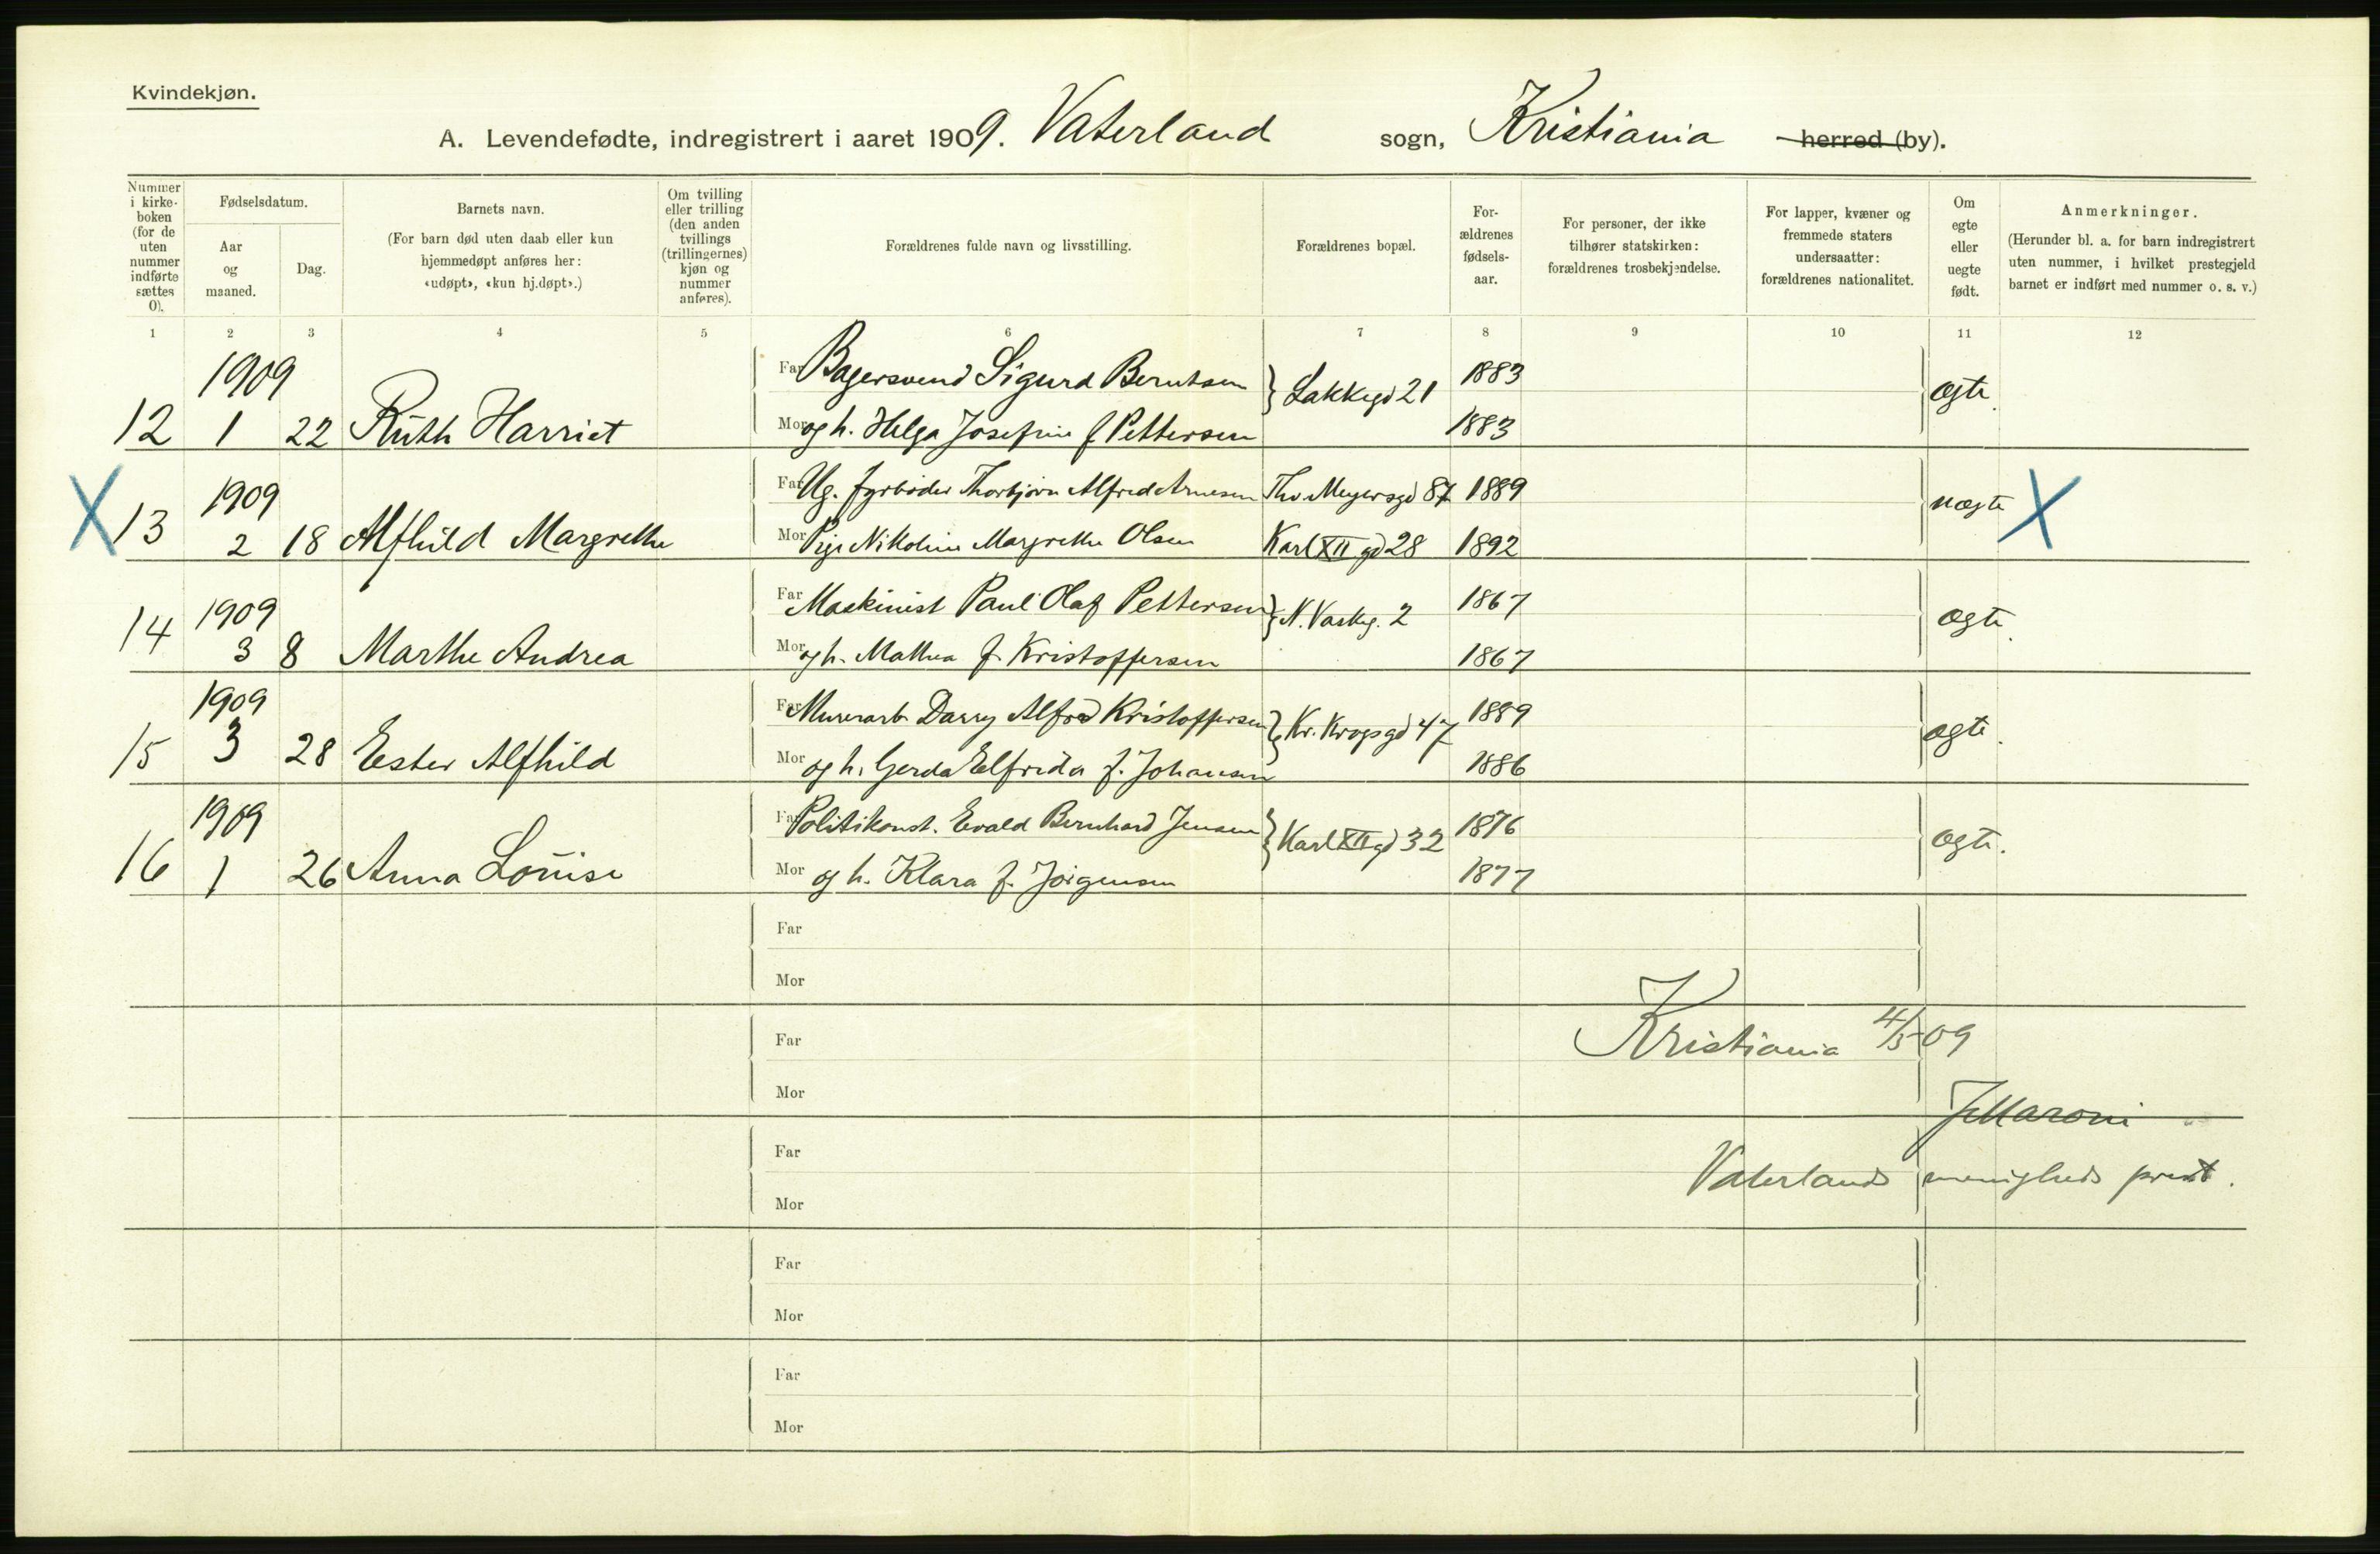 Kvindekjøn.
A. Levendefødte, indregistrert i aaret 1909. Vaterland sogn, Kristiania herred (by).
Nummer i kirke-boken (for de uten nummer indførte sættes 0).
Fødselsdatum.
Aar og maaned.
Dag.
Barnets navn.
(For barn død uten daab eller kun hjemmedøpt anføres her: «udøpt», «kun hj.døpt».)
Om tvilling eller trilling (den anden tvillings (trillingernes) kjøn og nummer anføres).
Forældrenes fulde navn og livsstilling.
Forældrenes bopæl.
For-ældrenes fødsels-aar.
For personer, der ikke tilhører statskirken: forældrenes trosbekjendelse.
For lapper, kvæner og fremmede staters undersaatter: forældrenes nationalitet.
Om egte eller uegte født.
Anmerkninger.
(Herunder bl. a. for barn indregistrert uten nummer, i hvilket prestegjeld barnet er indført med nummer o. s. v.)
1 2 3 4 5 6 7 8 9 10 11 12
1909 Far Bagersvend Sigurd Berntsen Lakkegd 21 1883 ægte
12 1 22 Ruth Harriet Mor og h. Helga Josefine f Pettersen 1883
X 1909 Far Ug. fyrbøder Thorbjørn Alfred Arnesen Thv Meyersgd 87 1889 uægte X
13 2 18 Alfhild Margrethe Mor Pige Nikoline Margrethe Olsen Karl XII gd 28 1892
1909 Far Maskinist Paul Olaf Pettersen N. Vaskeg. 2 1867 ægte
14 3 8 Marthe Andrea Mor og h. Mathea f. Kristoffersen 1867
1909 Far Murerarb. Alfred Kristoffersen Kr. Krogsgd 47 1889 ægte.
15 3 28 Ester Alfhild Mor og h. Gerda Elfrida f. Johansen 1886
1909 Far Politikonst. Evald Bernhard Jensen Karl XII gd 32 1876 ægte.
16 1 26 Anna Louise Mor og h. Klara f. Jørgensen 1877
Far
Mor
Far Kristiania 4/5 09
Mor
JMaroni
Far
Vaterlands menigheds prest.
Mor
Far
Mor
Far
Mor